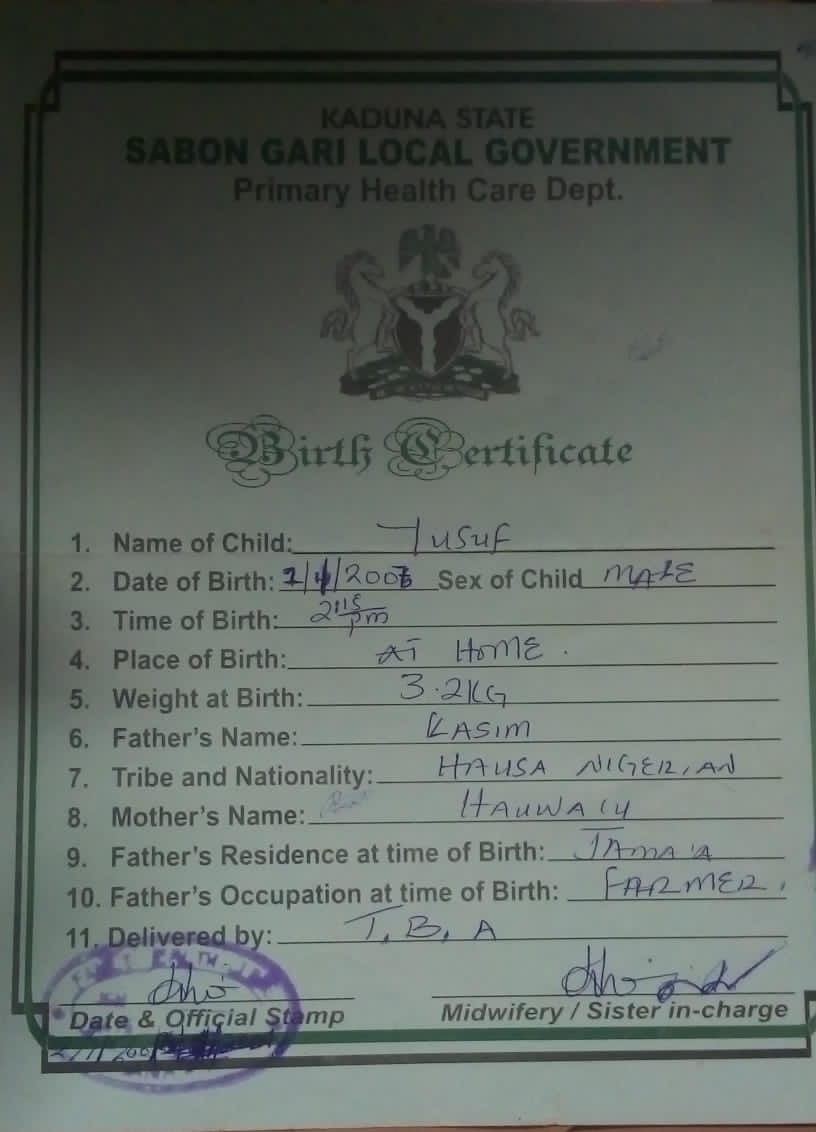 KADUNA STATE
SABON GARI LOCAL GOVERNMENT
Primary Health Care Dept.
Birth Certificate
1. Name of Child: Yusuf
2. Date of Birth: Sex of Child MALE
3. Time of Birth: 2:15 pm
4. Place of Birth: AT HOME.
5. Weight at Birth: 3.2KG
6. Father's Name: KASIM
7. Tribe and Nationality: HAUSA NIGERIAN
8. Mother's Name:
9. Father's Residence at time of Birth: JAMA'A
10. Father's Occupation at time of Birth: FARMER.
11. Delivered by: T.B.A
Date & Official Stamp Midwifery / Sister in-charge